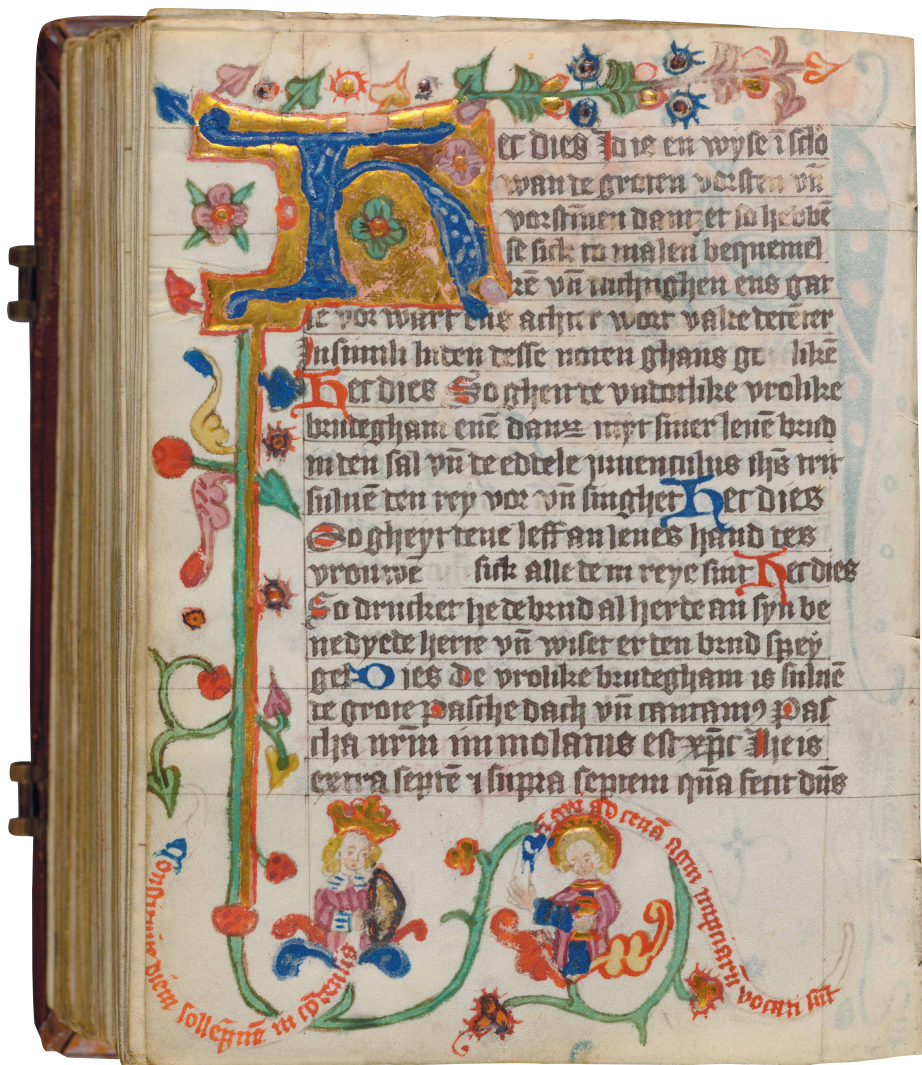 Het dies Id is en wyse ī scĺo
wan te groten vorsten vn̄
vorstinnen dantzet so hebbē
se sick to malen bequemel
kē vn̄ tuchtighen ens gat
te vor wart ens achter wort valte
Insimili luden tesse noten ghans ge likē
Het dies So gheyt te vntotlike vrolike
brutegham enē dantz myt siner leuē brud
in ten sal vn̄ te eddele iuuenculus ih̄s
suluē ten rey vor vn̄ singhet Het dies
So gheyt tene leff an ienes hand tes
vrouwē sick alle te m reye sint Het dies
So drucket he te brud al herte an syn be
nedyede herte vn̄ wiset er ten brud spey
gel Dies De vrolike brutegham is suluē
te grote Pasche dach vn̄ cantam⁹ Pas
cha nr̄m immolatus est xp̄c He is
extra septē ⁊ supra septem qn̄a fecit dn̄s
Constituite diem sollēpnē in cōdensis
ad cenā agni nuptiarū vocati sūt